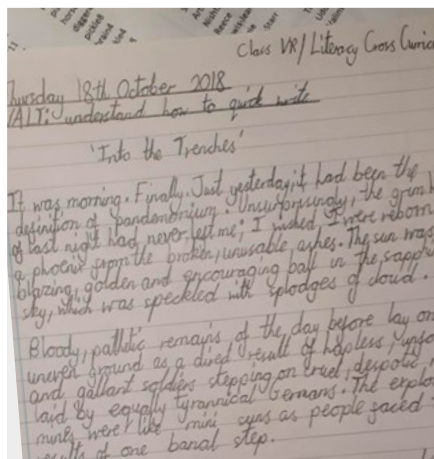 11
horse
digger
pickled
brain4
kind
Art
Nishit
Reece
wish-lear
Starr
T
Uda
Class VR/Literacy Cross Curric
hursday 18th October 2018
/ALT: understand how to quick write
'Into the Trenches'
It was morning. Finally. Just yesterday, it had been the
definition of pandemonium. Unsurprisingly, the grim
of last night had never left me, I wished I were reborn
a phoenix from the broken, unusable ashes. The sun was
blazing, golden and encouraging ball in the sapph
sky, which was speckled with splodges of cloud.
Bloody, pathetic remains of the day before lay on
uneven ground as a direct result of hapless, unfo
and gallant soldiers stepping on cruel, despotic
laid by equally tyrannical Germans. The explo
mines were like mini suns as people faced
results of one banal step.